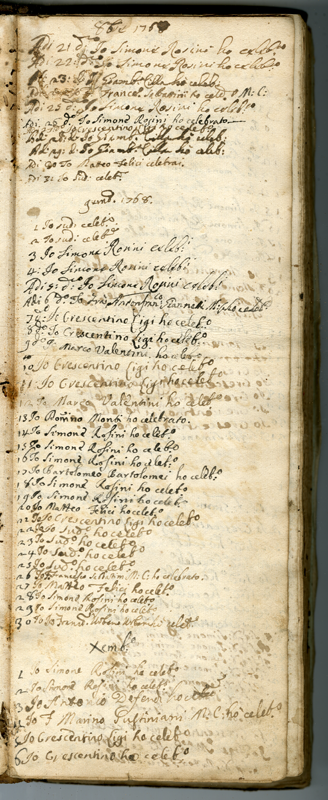 8bre 1768
Adi 21 do: Io Simone Rosini ho celebo.
Adi 22 do: Io Simone Rosini ho celebo.
Adi 23: Io Giamb: Cella ho celebo.
Io Frances. Sebastini ho celebo M: C:
Adi 25 do: Io Simone Rosini ho celebo
Adi 26 do Io Simone Rosini ho celebrato
Io Crescentino Cigi ho celebo
Io Simone Rosini ho celebo
Io Giamb: Cella ho celeb:
Di 30 Io Matteo Felici celebrai
Di 31 Io sud: celebo
1768.
1 Io sud: celebo
2 Io sudo: celebo
3 Io Simone Rosini celebo:
4: Io Simone Rosini celebo:
Adi 5: do: Io Simone Rosini celebo:
Adi 6 do: Io celebo
7 Io Crescentino Cigi ho celebo
8 do: Io Crescentino Cigi ho celebo
9 Marco Valentini ho celebo
10 Io Crescentino Cigi ho celebo
11: Io Crescentino Cigi ho celebo
12 Io Marco Valentini ho celebo
13 Io Monti ho celebrato.
14 Io Simone Rosini ho celebo
15 Io Simone Rosini ho celebo
16 Io Simone Rosini ho celebo:
17 Io Bartolomeo Bartolomei ho celebo
18 Io Simone Rosini ho celebo
19 Io Simone Rosini ho celebo
20 Io Matteo Felici ho celebo
Io Crescentino Cigi ho celebo
22 Io Sudo ho celebo
23 Io Sudo ho celebo
24 Io Sudo ho celebo
25 Io Sudo ho celebo
26 Io Francesco Sebastini M: C: ho celebrato.
27 Io Matteo Felici ho celebo
28 Io Simone Rosini ho celebo
29 Io Simone Rosini ho celebo
30 Io Franco. celebo.
Xembre
1 Io Simone Rosini ho celebo
2 Io Simone Rosini ho celebo
3 Io Antonio Defendi ho celebo
4 Io F. Marino Giustiniani M: C: ho celebo.
5 Io Crescentino Cigi ho celebo
6 Io Crescentino Cigi ho celebo